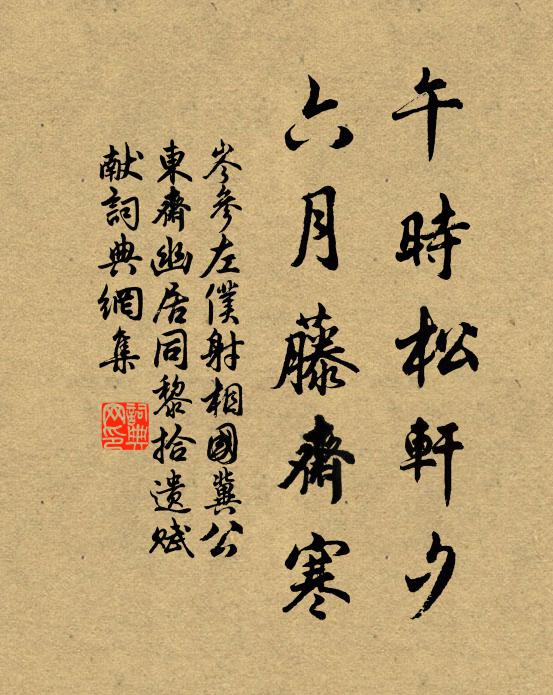 午時松軒夕
六月藤齋寒
岑參左僕射相國冀公
東齋幽居同黎拾遺賦
献詞典網集
詞典
网印